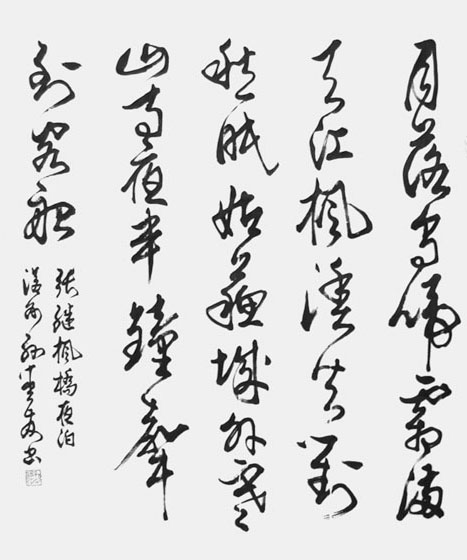 月落烏啼霜滿
天江楓漁火對
愁眠姑蘇城外寒
山寺夜半鐘聲
到客船
張繼楓橋夜泊
孫書